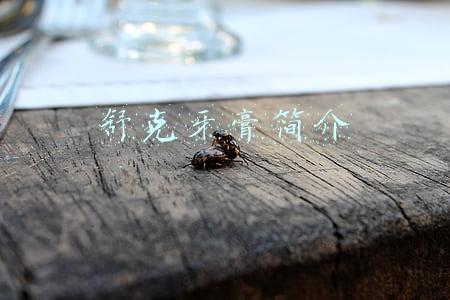 舒克牙膏简介